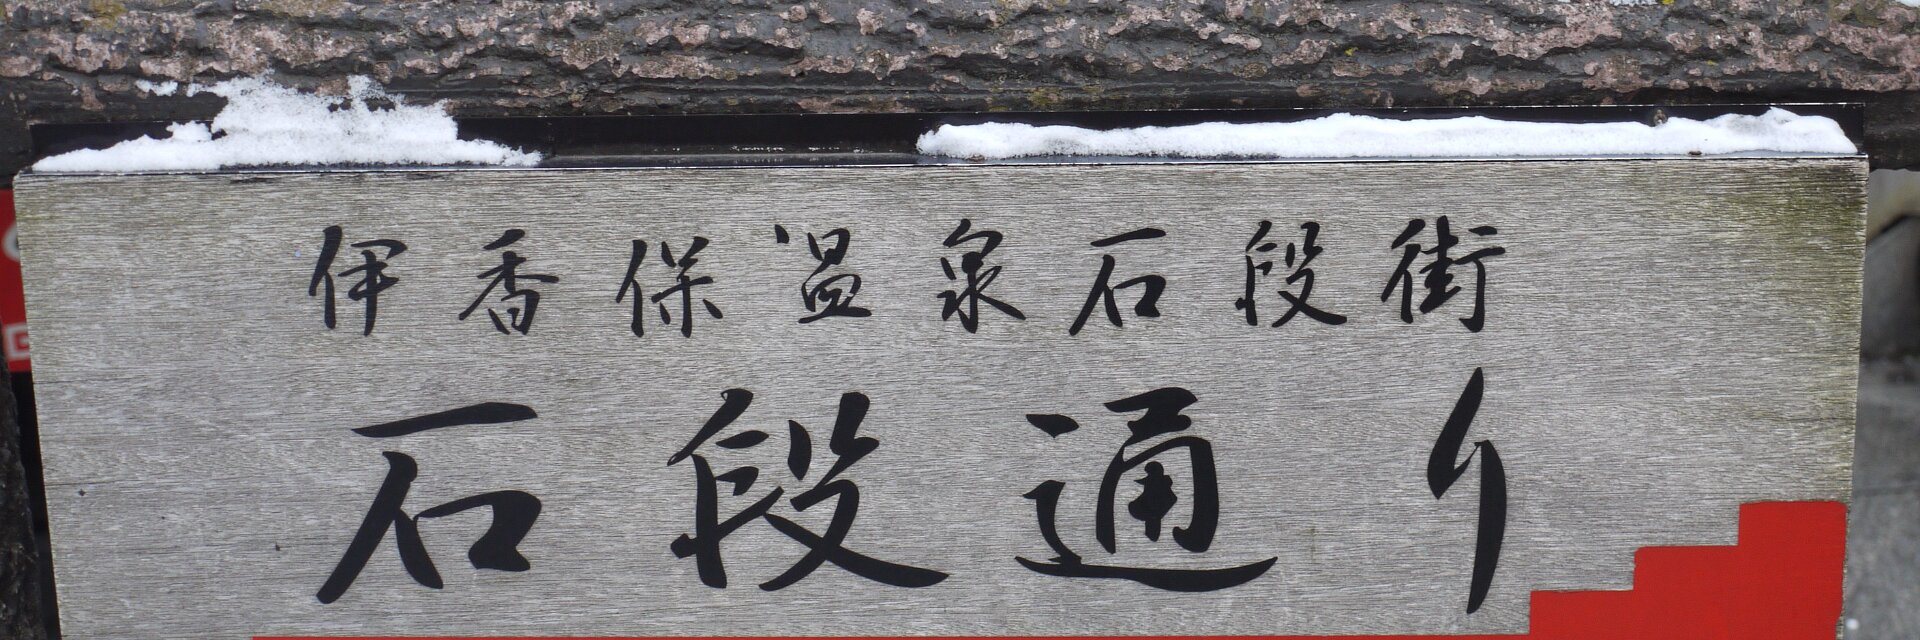 伊香保温泉石段街
石段通り